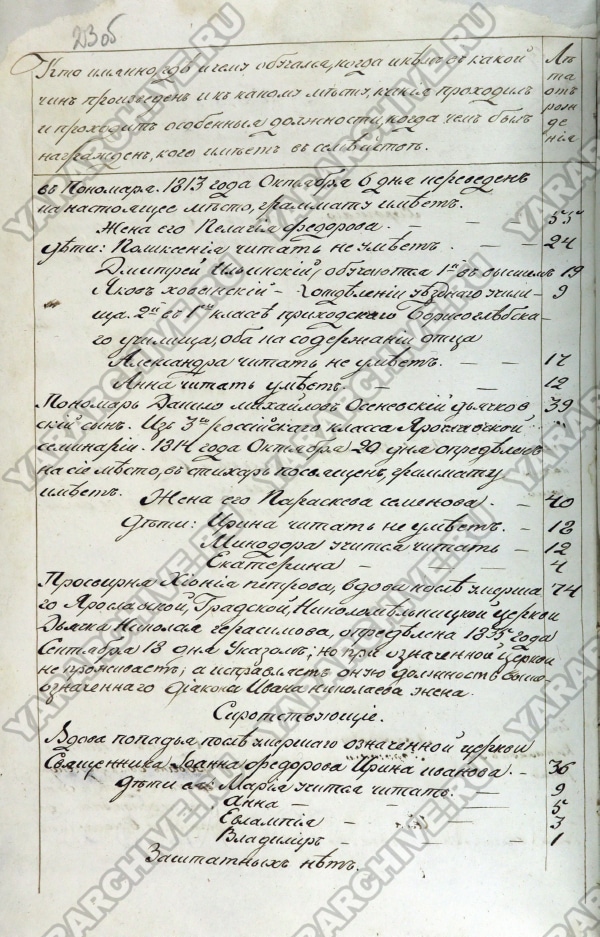 23 об
Кто имянно, гдѣ и чему обучался, когда и кѣмъ въ какой
чинъ произведенъ и къ какому мѣсту, какія проходилъ
и проходитъ особенныя должности, когда чемъ былъ
награжденъ, кого имѣетъ въ семействѣ.
Лѣ
та
отъ
рож
де
нія
въ Пономаря. 1813 года Октября 6 дня переведенъ
на настоящее мѣсто, граммату имѣетъ.
Жена его Пелагія федорова. — 53
Дѣти: Поликсенія читать не умѣетъ. — 24
Дмитрей Ильинскій, обучаются 1й въ высшемъ 19
Яковъ — отдѣленіи уѣзднаго учили- 9
ща. 2й въ 1мъ классѣ приходскаго Борисоглѣбска-
го училища, оба на содержаніи отца
Александра читать не умѣетъ. — 17
Анна читать умѣетъ. — 12
Пономарь Данило михайловъ Осеневскій дьячков 39
скій сынъ. Изъ 3го россійскаго класса Ярославской
семинаріи. 1814 года Октября 29 дня опредѣленъ
на сіе мѣсто, въ стихарь посвященъ, граммату
имѣетъ.
Жена его Параскева семенова. — 40
Дѣти: Ирина читать не умѣетъ. — 18
Минодора учится читать — 12
Екатерина — 4
Просвирня Хіонія петрова, вдова послѣ умерша 74
го Ярославской, Градской, Николомѣльницкой церкви
Дьячка Николая герасимова, опредѣлена 1835 года
Сентября 18 дня Указомъ; но при означенной Церкви
не проживаетъ; а исправляетъ оную должность выше
означеннаго діакона Ивана николаева жена.
Сиротствующіе.
Вдова попадья послѣ умершаго означенной церкви
Священника Іоанна федорова Ирина иванова. — 36
Дѣти ея: Марія учится читать. — 9
Анна — 5
Евлампія — 3
Владимiръ — 1
Заштатныхъ нѣтъ.
YARARCHIVE.RU